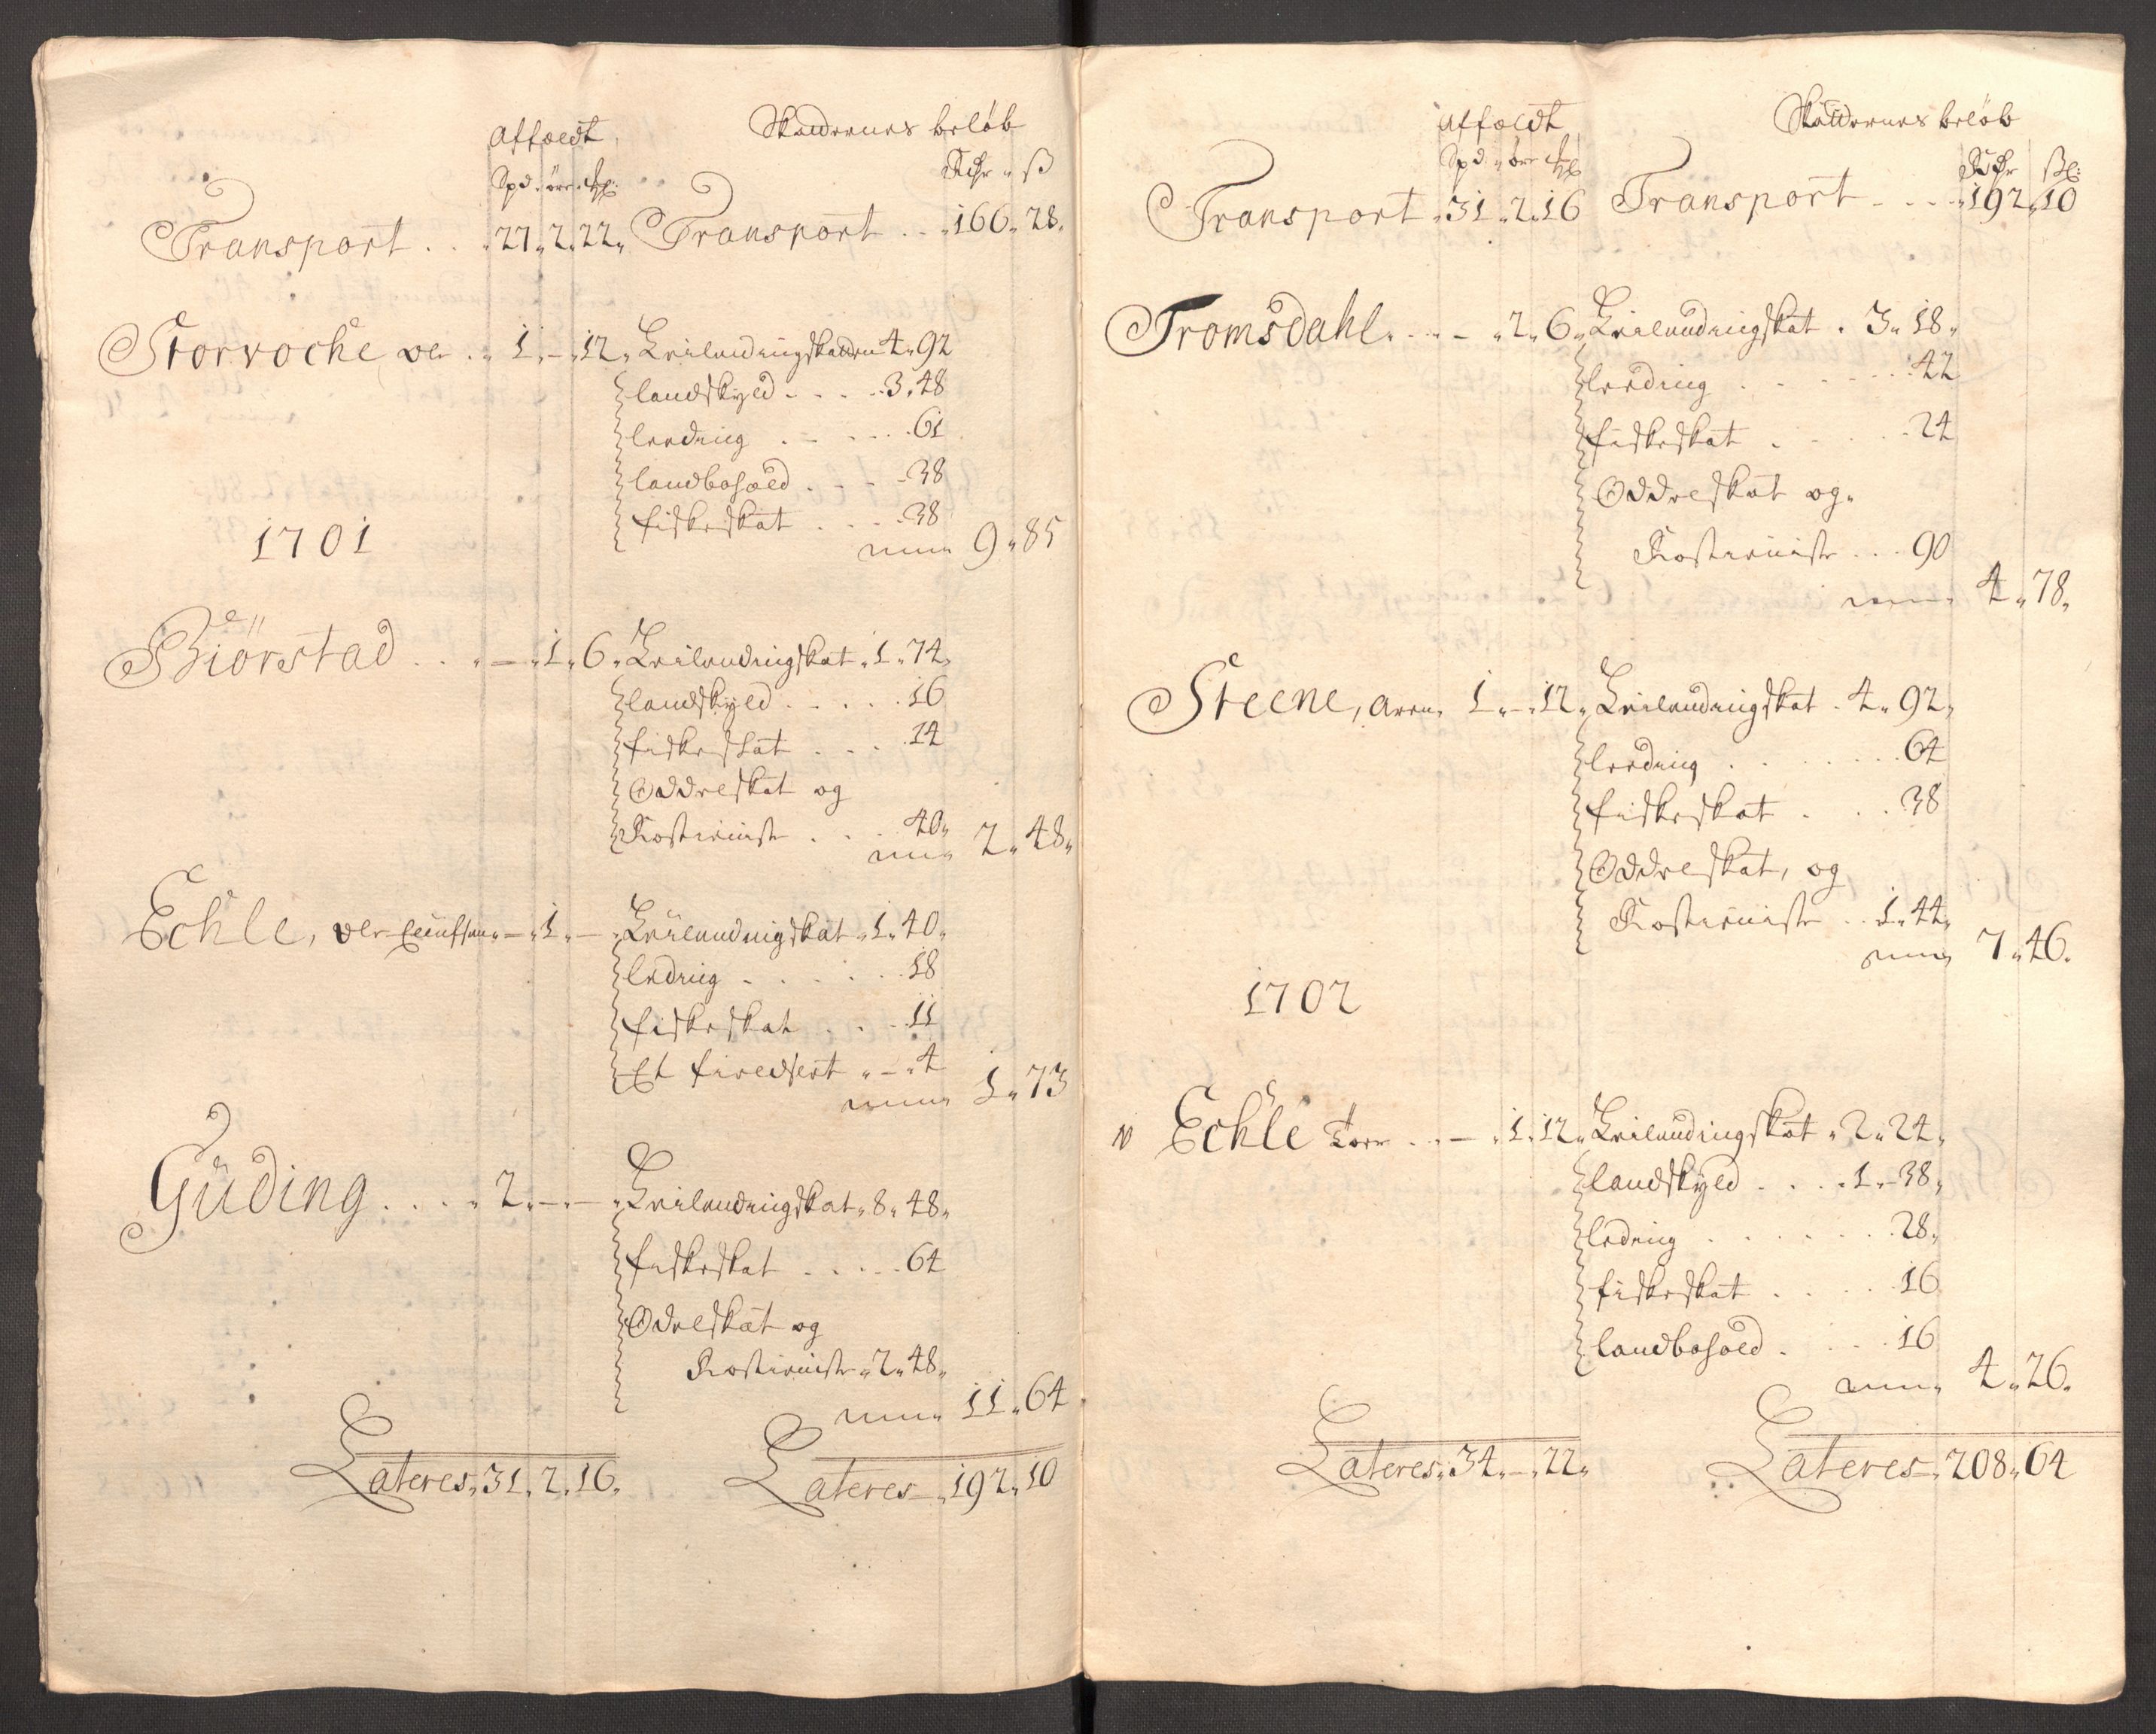 Affældt Skadernes beløb
Spd. øre. Rdr ß
Transport . . 27. 2. 22. Transport . . 166. 28.
Storvoche, Ole . . 1. - . 12. Leilendingskaden 4. 92
landskyld . . . . 3. 48
lereding . . . . 61
landbohold . . . 38
fiskeskat . . . . 38
9. 85
1701
Biörstad . . . - . 1. 6. Leilendingskat . 1. 74.
landskyld . . . . 16
fiskeskat . . . 14
Oddelskat og
Rostieniste . . . 40.
2. 48.
Echle, - . 1. - Leilendingskat . 1. 40.
ledning . . . . . 18
fiskeskat . . . . 11
. - . 4
1. 73
Güding . . . . 2. - . - . Leilendingskat . 8. 48.
fiskeskat . . . . . 64
Odelskat og
Rostieniste . 2. 48.
11. 64
Lateres. 31. 2. 16. Lateres . 192. 10
Affældt Skadernes beløb
Spd. øre Rdr ß
Transport . 31. 2. 16 Transport . . . . 192. 10
Tromsdahl . . . - . 2. 6. Leilendingskat . 3. 18.
lereding . . . . . . 42
fiskeskat . . . . . 24
Oddelskat og
Rostieniste . . . 90
4. 78.
Steene, Aren. 1. - . 12. Leilendingskat . 4. 92.
lereding . . . . . . . 64
fiskeskat . . . 38
Oddelskat, og
Rostieniste . . 1. 44.
7. 46.
1702
N Echle Tore . . - . 1. 12. Leilendingskat . 2. 24.
landskyld . . . . 1. 38.
ledning . . . . . . . 28.
fiskeskat . . . . . 16
landbohold . . . . 16
4. 26.
Lateres. 34. - . 22. Lateres . 208. 64